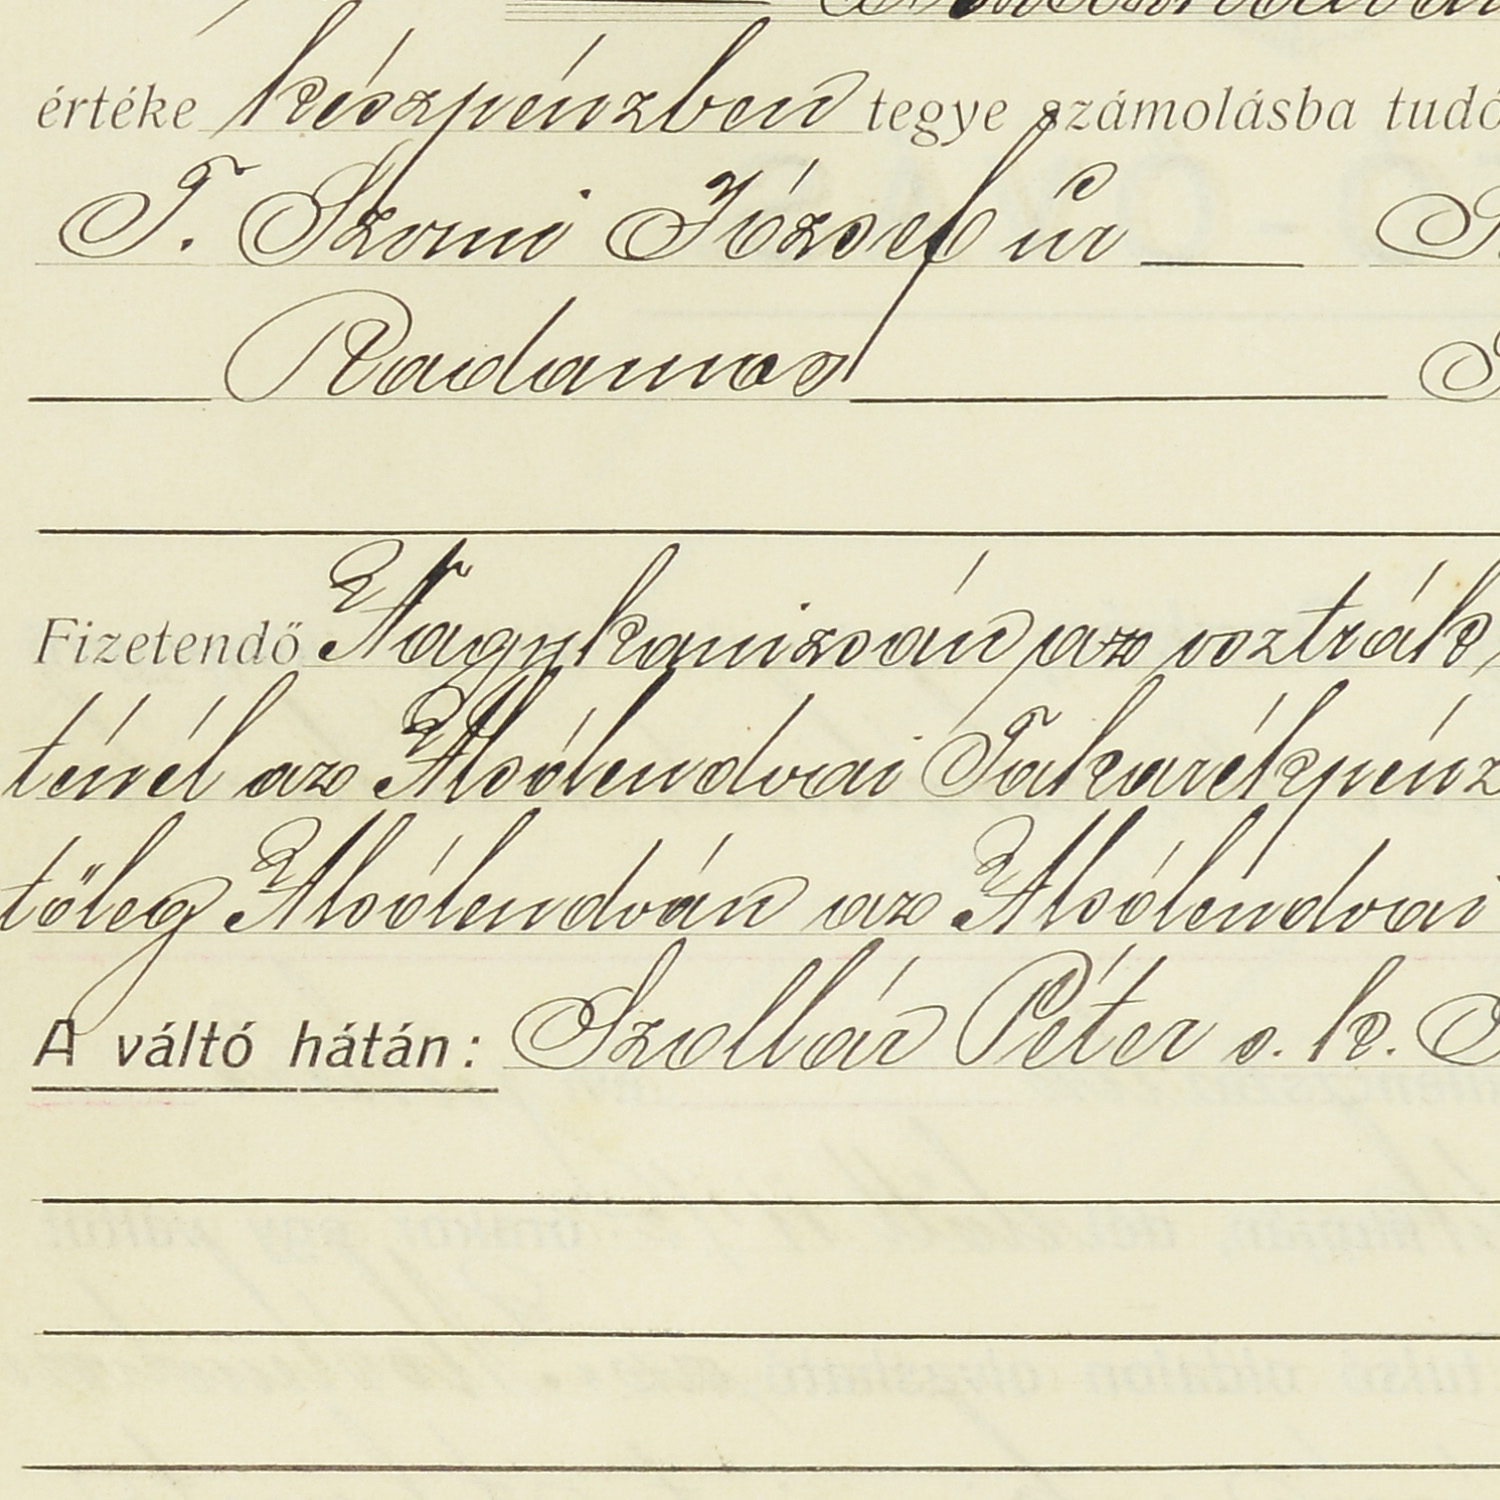 értéke készpénzben tegye számolásba tudó
T. Szomi József úr
Radamos
Fizetendő Nagykanizsán az osztrák
ténél az Alsólendvai Takarékpénz
tőleg Alsólendván az Alsólendvai
A váltó hátán: Szollár Péter s. k.